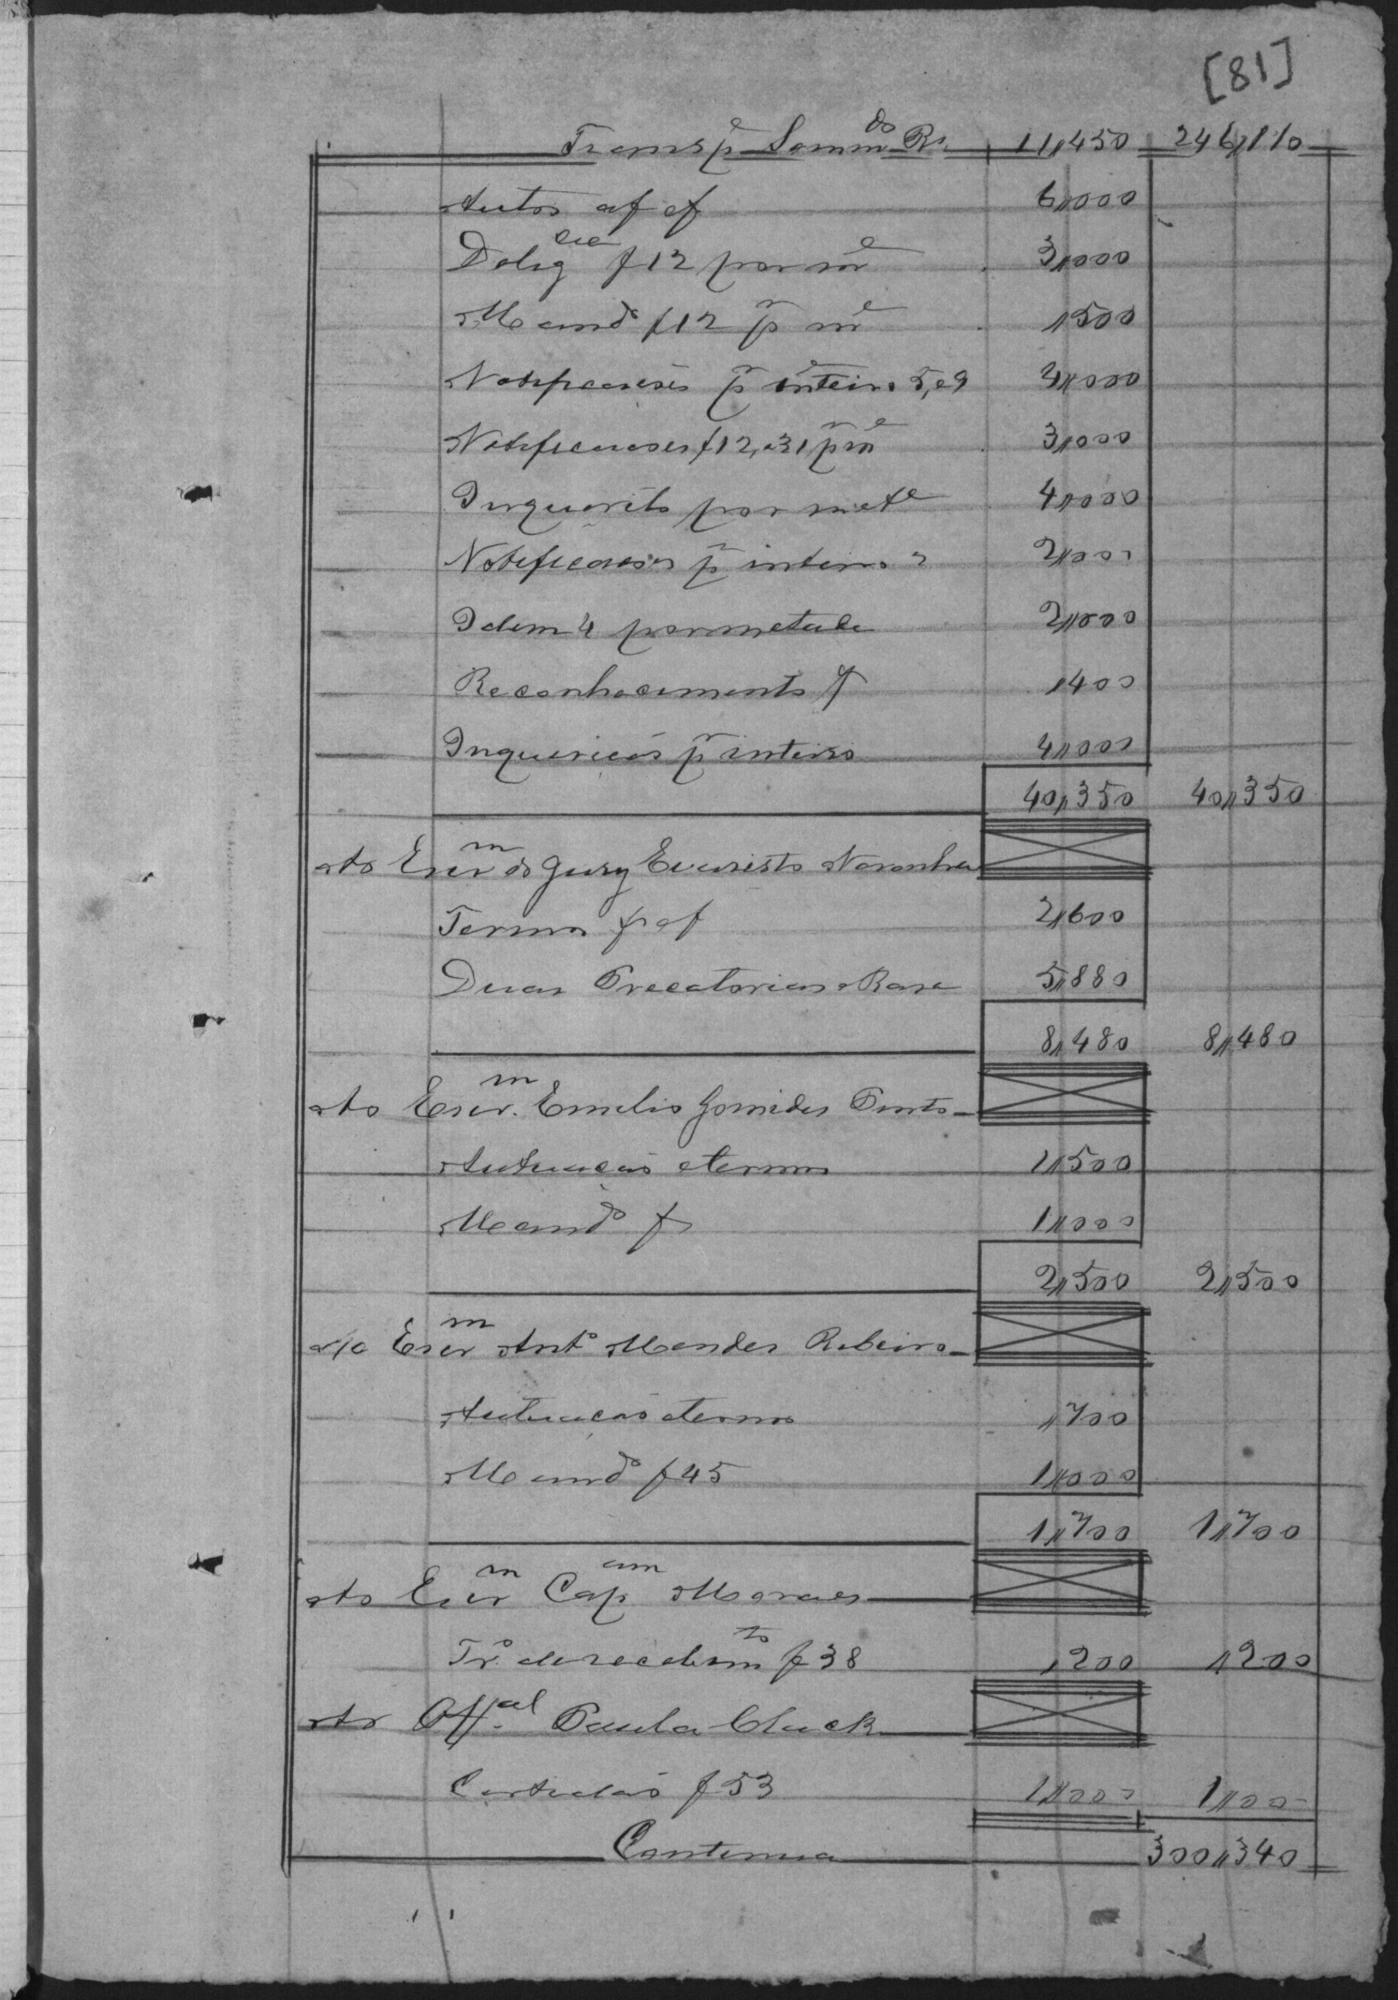 [81]
Transpe Sommdo Rs 11,,450 246,,110
Autos af ef 6,,000
Delig cia f 12 por me 3,,000
Mando f 12 pr me ,,500
Notificacoes pr inteiro 5, e 9
Notificacoes f 12, e 31 pr me 3,,000
Inquerito por mete 4,,000
Notificacões pr inteiro 2 2,,000
Idem 4 por metade 2,,000
Reconhecimento f ,,400
Inquericao pr inteiro 4,,000
40,,350 40,,350
Ao Escrm do Jury Evaristo Noronha
Termos f e f 2,,600
Duas Precatorias e Rasa 5,,880
8,,480 8,,480
Ao Escr.m Emilio Gomides Pinto
Autuacao e termos 1,,500
Mando f 1,,000
2,,500 2,,500
Ao Escrm Anto Mendes Ribeiro
Autuacao e termos ,,700
Mando f 45 1,,000
1,,700 1,,700
Ao Escrm Capam Moraes
Tro de recebimto f 38 ,,200 ,,200
Ao Offal Paula Cluck
Certidao f 53 1,,000 1,,00
Continua 300,,340